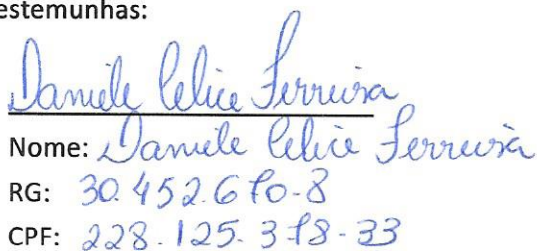 estemunhas:
Daniele Celice Ferreira
Nome: Daniele Celice Ferreira
RG: 30.452.670-8
CPF: 228.125.378-33